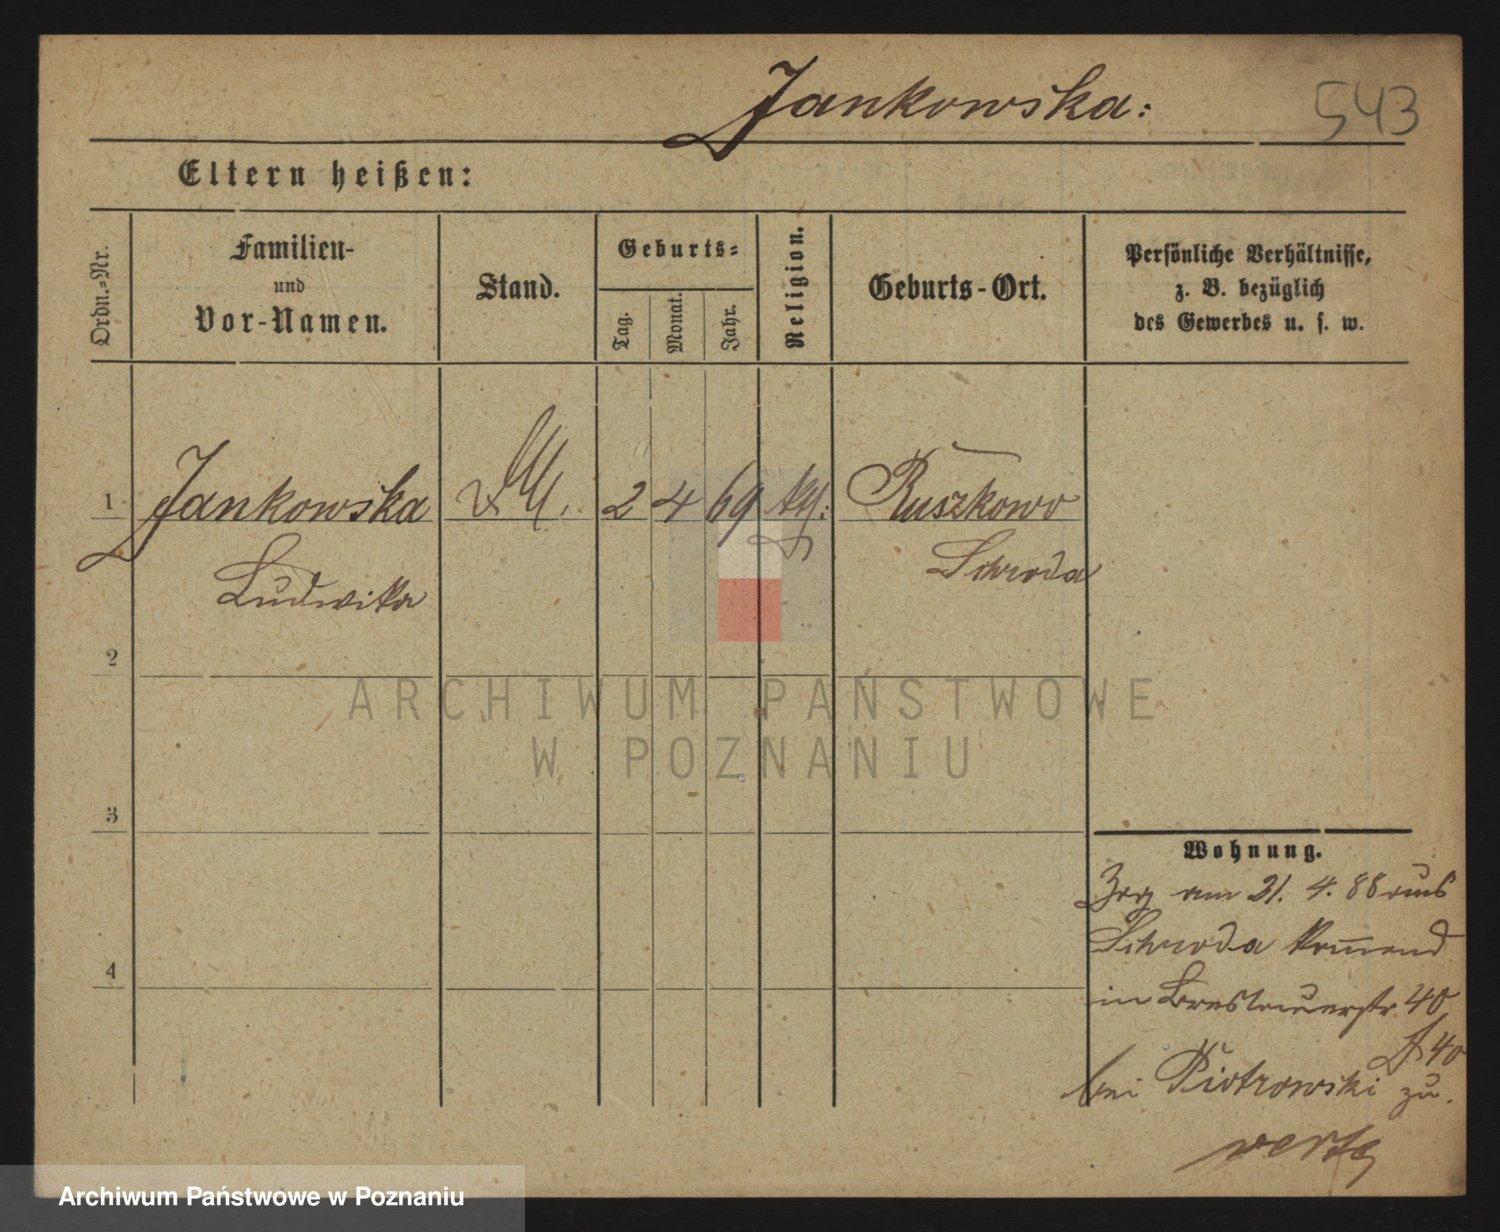 Jankowska:
543
Eltern heißen:
Ordn.-Nr.
Familien-
und
Vor-Namen.
Stand.
Geburts-
Tag.
Monat.
Jahr.
Religion.
Geburts-Ort.
Persönliche Verhältnisse,
z. B. bezüglich
des Gewerbes u. s. w.
1 Jankowska 2 4 69 Ruszkowo
Ludwika Schroda
2
3
4
Wohnung.
Zog am 21. 4. 88 aus
Schroda kommend
in Breslauerstr. 40
40
bei Piotrowski zu.
verte
ARCHIWUM PAŃSTWOWE
W POZNANIU
Archiwum Państwowe w Poznaniu